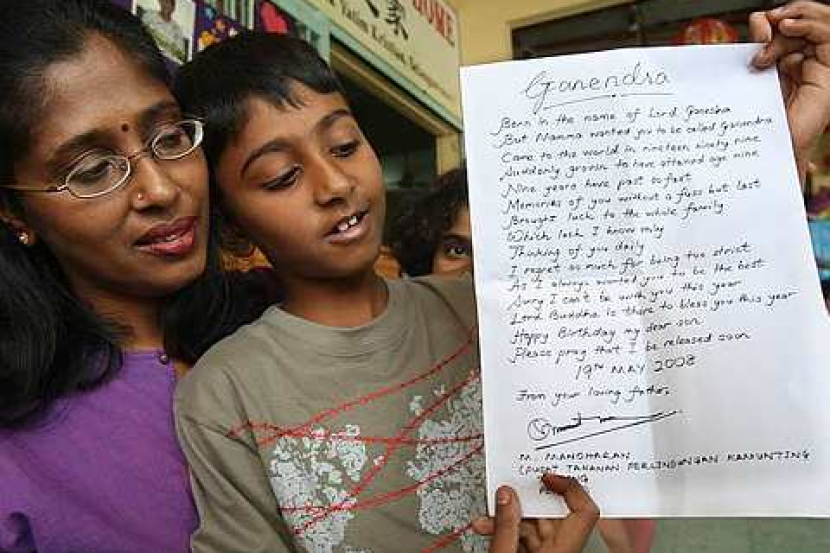 HOME
Ganendra
Born in the name of Lord Ganesha
But Mamma wanted you to be called Ganendra
Came to the world in nineteen ninety nine
Suddenly growin to have attained age nine
Nine years have past so fast
Memories of you without a fuss but last
Brought luck to the whole family
Which luck I know
Thinking of you daily
I regret so much for being too strict
As I always wanted you to be the best
Sorry I can't be with you this year
Lord Buddha is there to bless you this year
Happy Birthday my dear son
Please pray that I be released soon
19TH MAY 2008
From your loving father,
M. MANOHARAN
PUSAT TAHANAN PERLINDUNGAN KAMUNTING